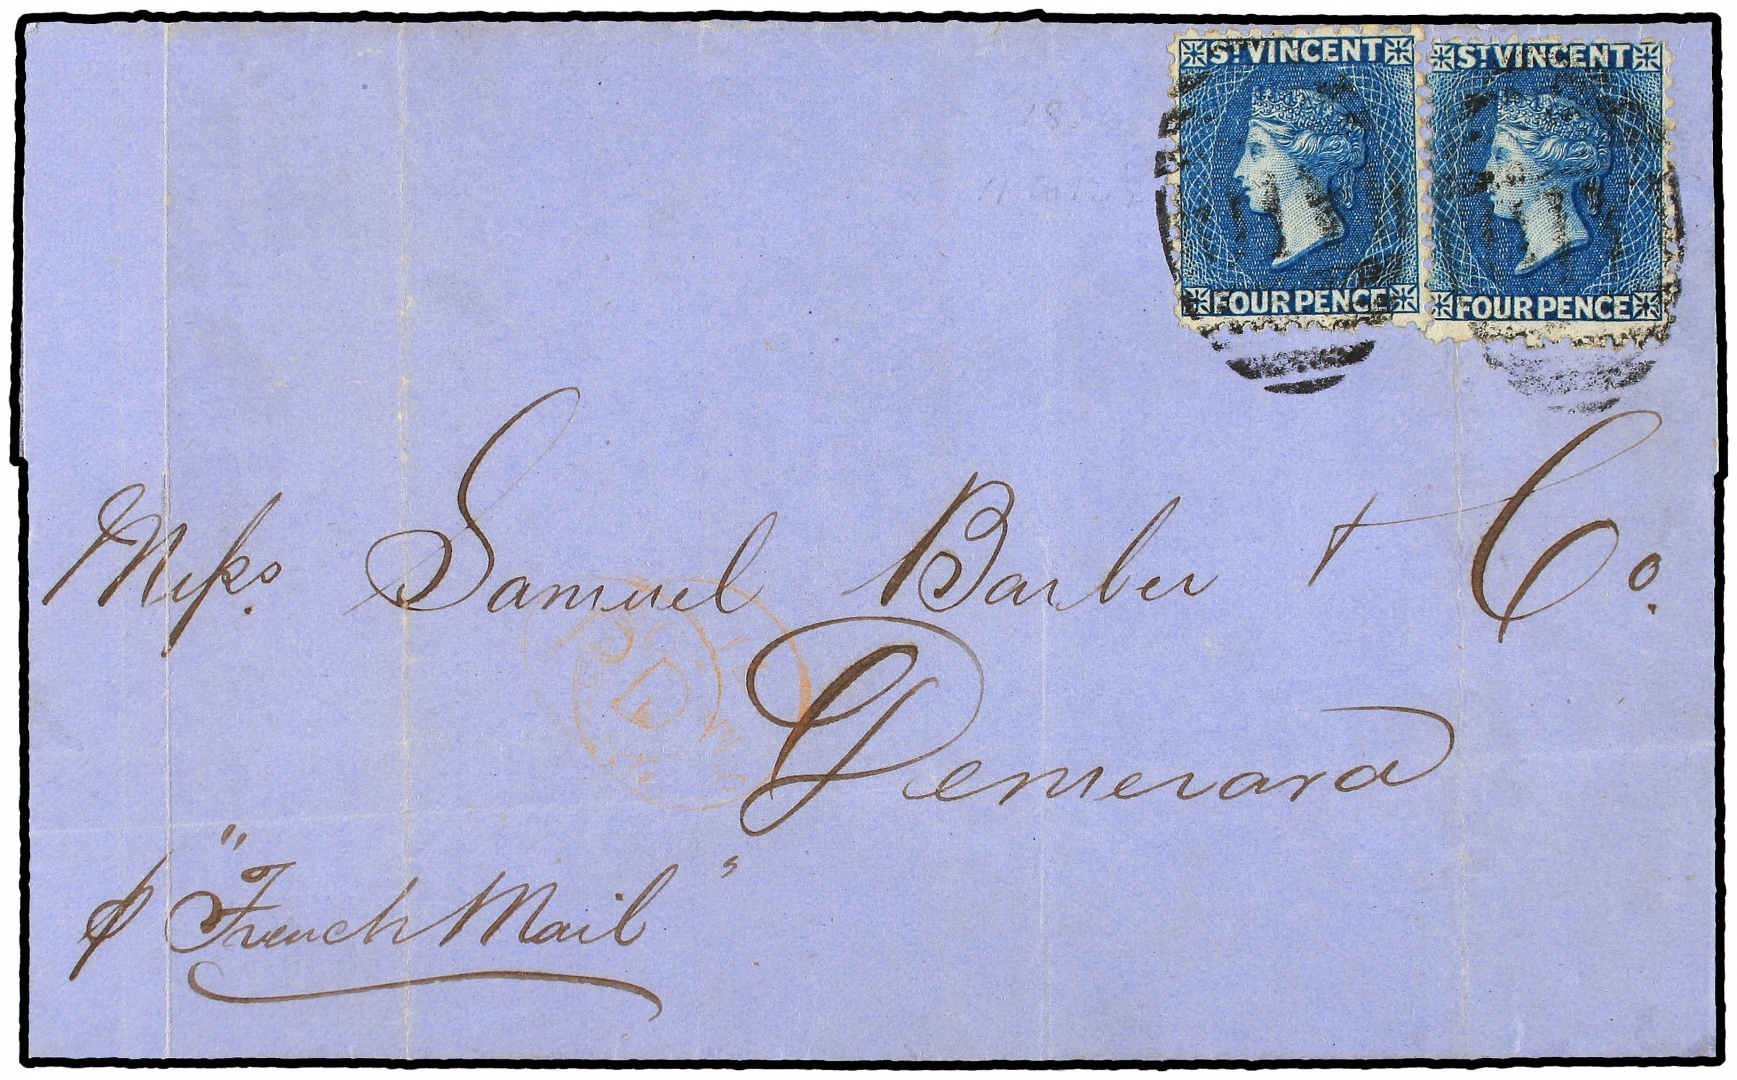 ST VINCENT
FOUR PENCE
ST VINCENT
FOUR PENCE
Messrs. Samuel Barber + Co.
Demerara
p "French Mail"